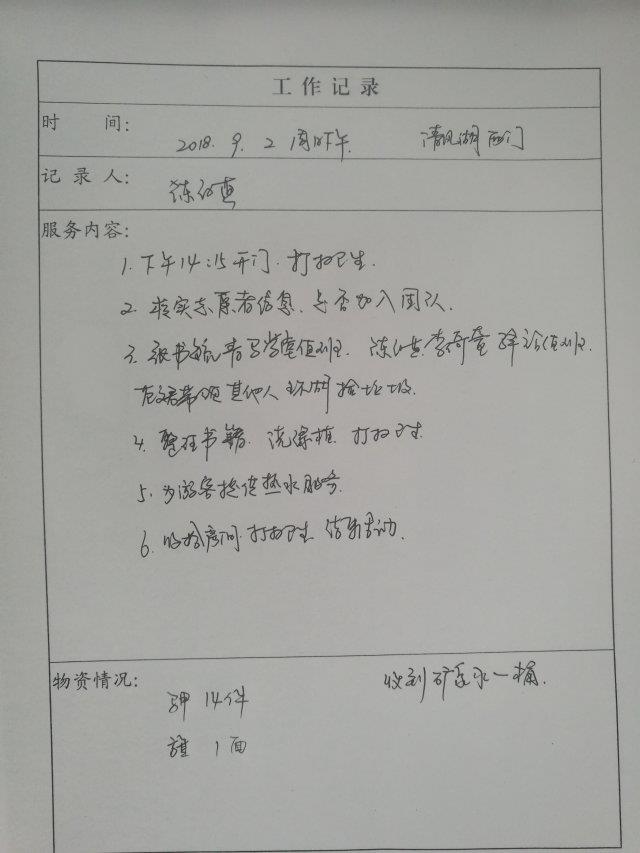 工作记录
时 间: 2018. 9. 2 周日下午. 清风湖西门
记录人: 陈红燕
服务内容:
1. 下午14:15开门. 打扫卫生.
2. 核实志愿者信息. 是否加入团队.
3. 张书航 青 学堂值班. 值班.
带领其他人环湖捡垃圾.
4. 整理书籍. 洗绿植. 打扫卫生.
5. 为游客提供热水服务.
6. 收拾房间 打扫卫生 结束活动.
物资情况: 收到矿泉水一桶.
马甲 14件
旗 1面